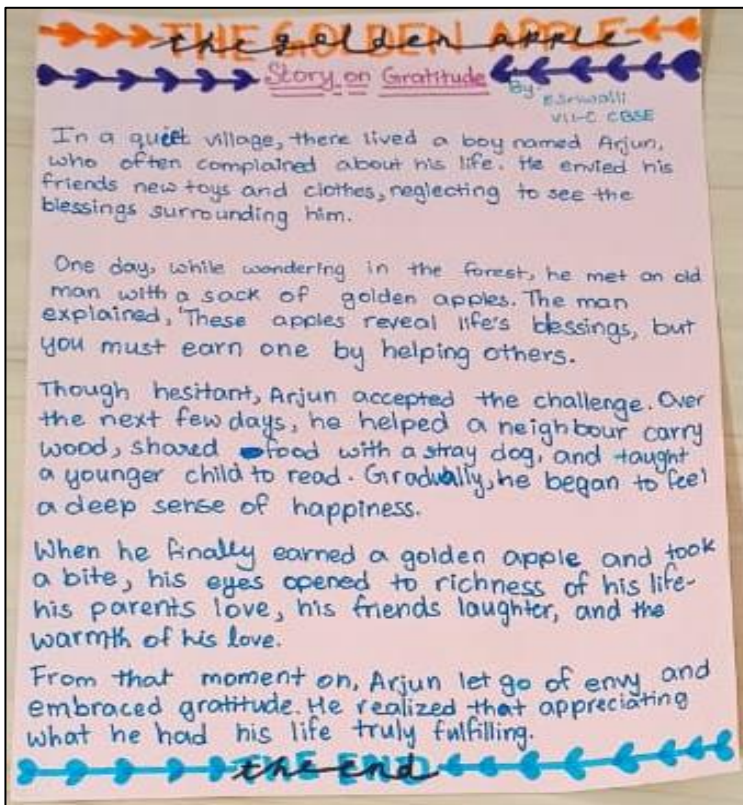 THE GOLDEN APPLE
the golden apple
Story on Gratitude
By:
VII-C CBSE
In a quiet village, there lived a boy named Arjun,
who often complained about his life. He envied his
friends new toys and clothes, neglecting to see the
blessings surrounding him.
One day, while wondering in the forest, he met an old
man with a sack of golden apples. The man
explained, 'These apples reveal life's blessings, but
you must earn one by helping others.
Though hesitant, Arjun accepted the challenge. Over
the next few days, he helped a neighbour carry
wood, shared food with a stray dog, and taught
a younger child to read. Gradually, he began to feel
a deep sense of happiness.
When he finally earned a golden apple and took
a bite, his eyes opened to richness of his life-
his parents love, his friends laughter, and the
warmth of his love.
From that moment on, Arjun let go of envy and
embraced gratitude. He realized that appreciating
what he had his life truly fulfilling.
THE END
the end